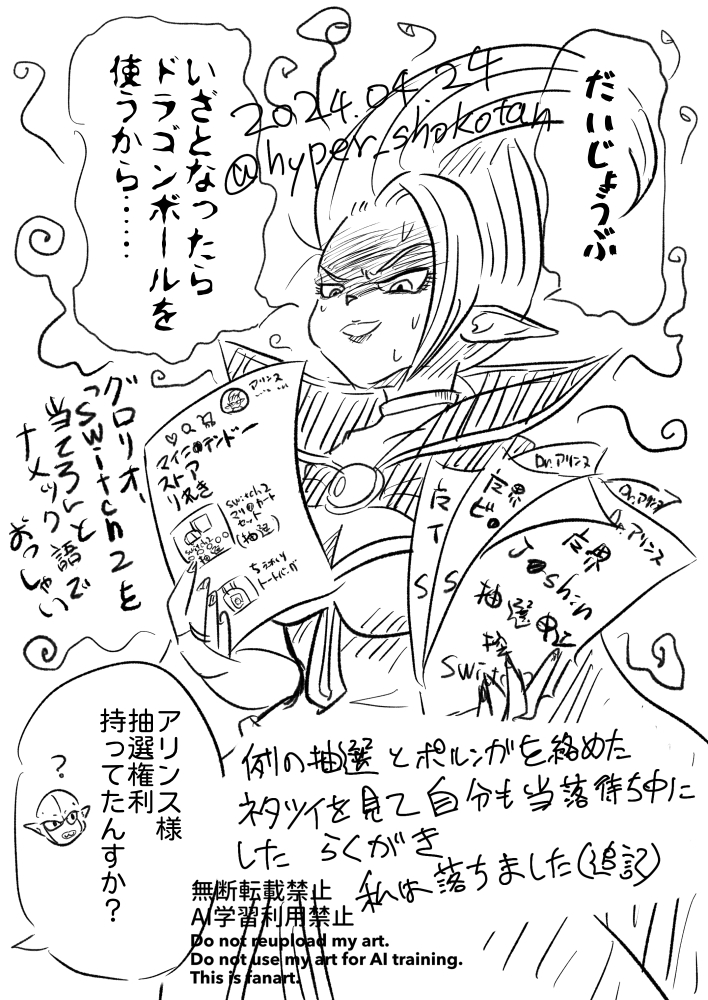 だいじょうぶ
いざとなったら
ドラゴンボールを
使うから……
2024.04.24
@hyper_shokotan
グロリオ、
「Switch2を
当てろ」と
ナメック語で
おっしゃい
アリンス
マイニ●テンドー
ストア
り抜き
switch2
マリ●カート
セット
(抽選)
トートバッグ
Dr.アリンス
Dr.アリンス
Dr.アリンス
魔界
ビ●
魔界
Joshin
抽選申込
控
Switch
例の抽選とポルンガを絡めた
ネタツイを見て自分も当落待ち中に
した らくがき
私は落ちました(追記)
アリンス様
抽選権利
持ってたんすか?
?
無断転載禁止
AI学習利用禁止
Do not reupload my art.
Do not use my art for AI training.
This is fanart.